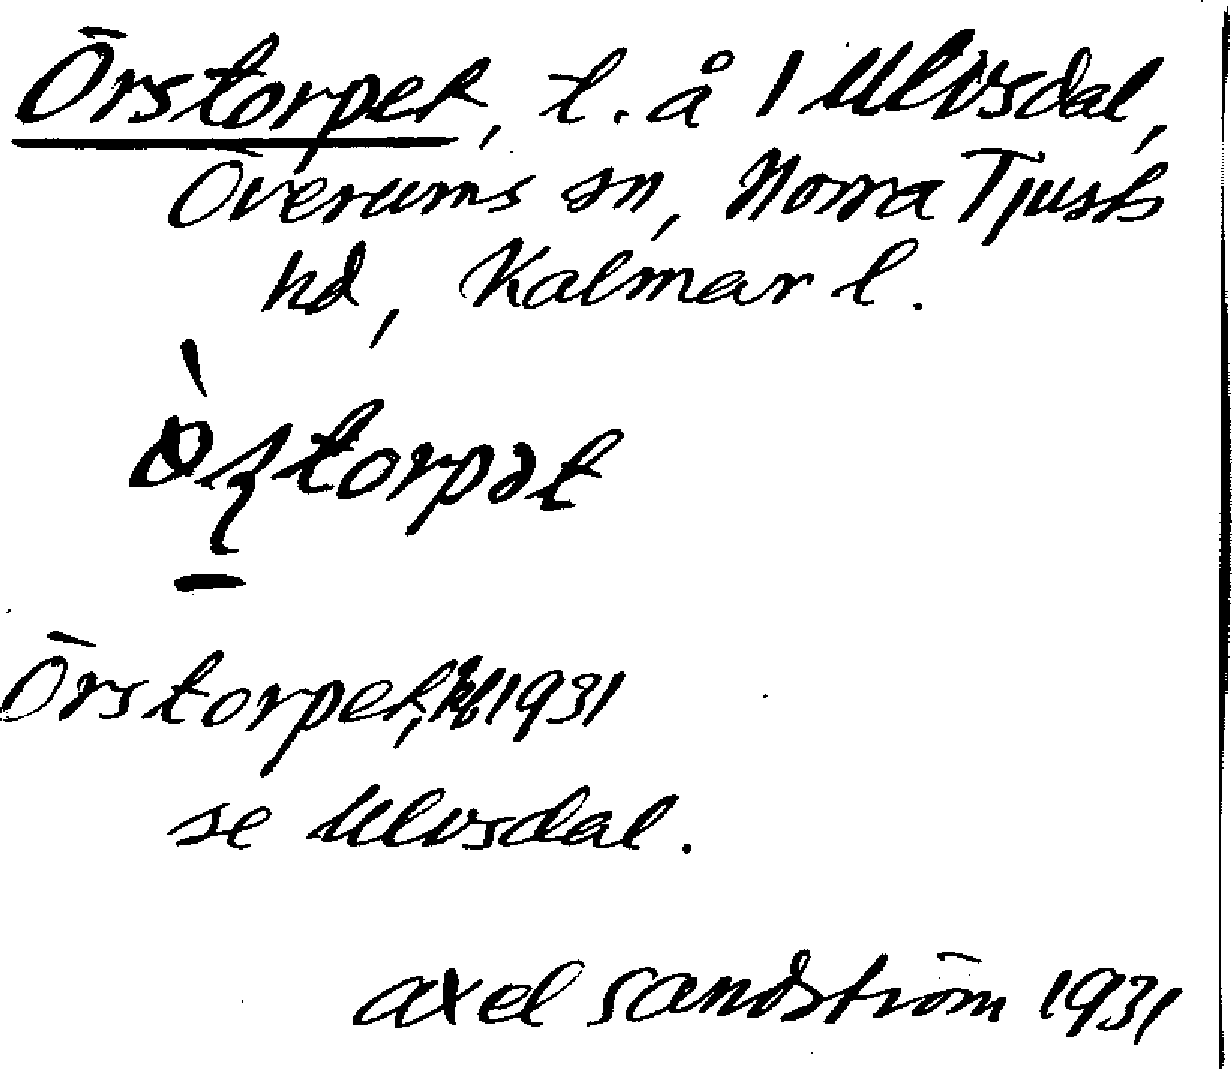 Örstorpet, t. å 1 Ulvsdal,
Överums sn, Norra Tjusts
hd, Kalmar l.
Örstorpet, 1931
se Ulvsdal.
Axel Sandström 1931